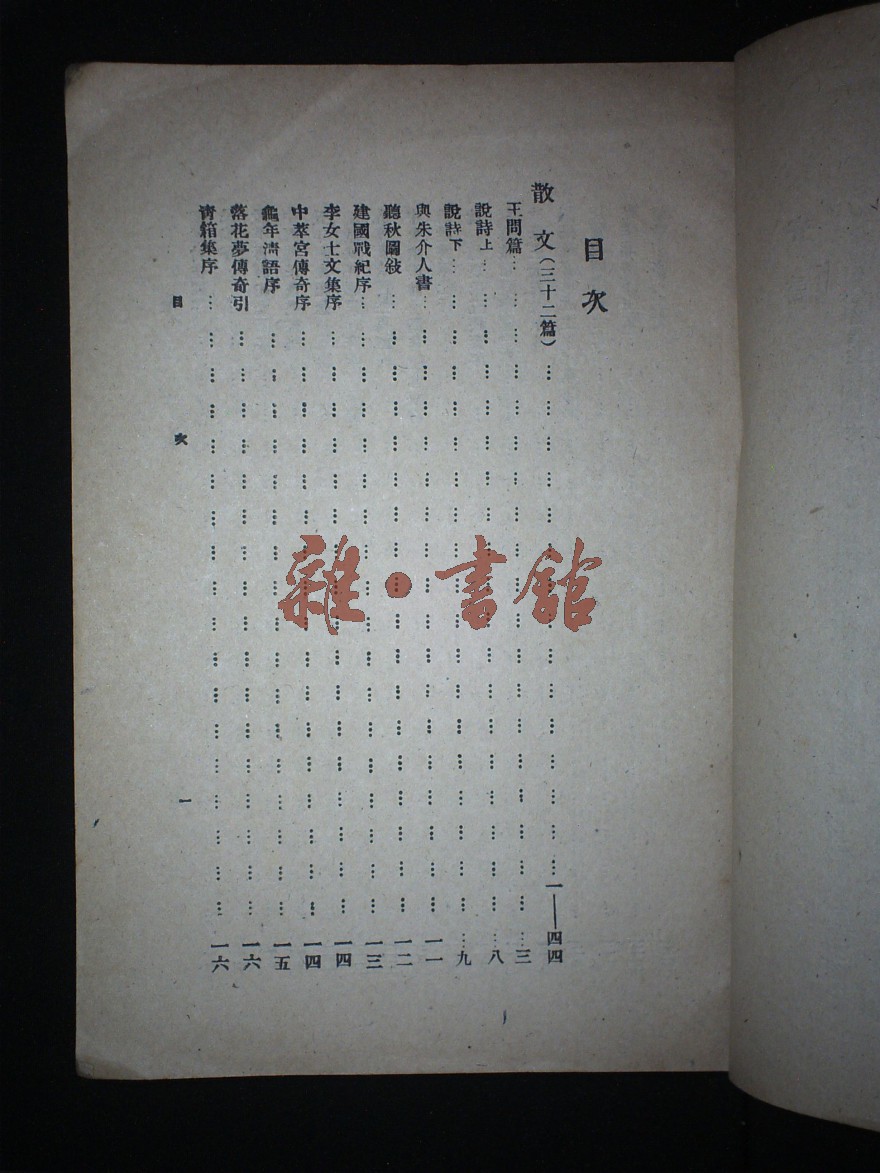 目次
散文(三十二篇)……一——四四
王問篇……三
說詩上……八
說詩下……九
與朱介人書……一一
聽秋圖敍……一二
建國戰紀序……一三
李女士文集序……一四
中萃宮傳奇序……一四
龜年清語序……一五
落花夢傳奇引……一六
青箱集序……一六
目次 一
雜·書館